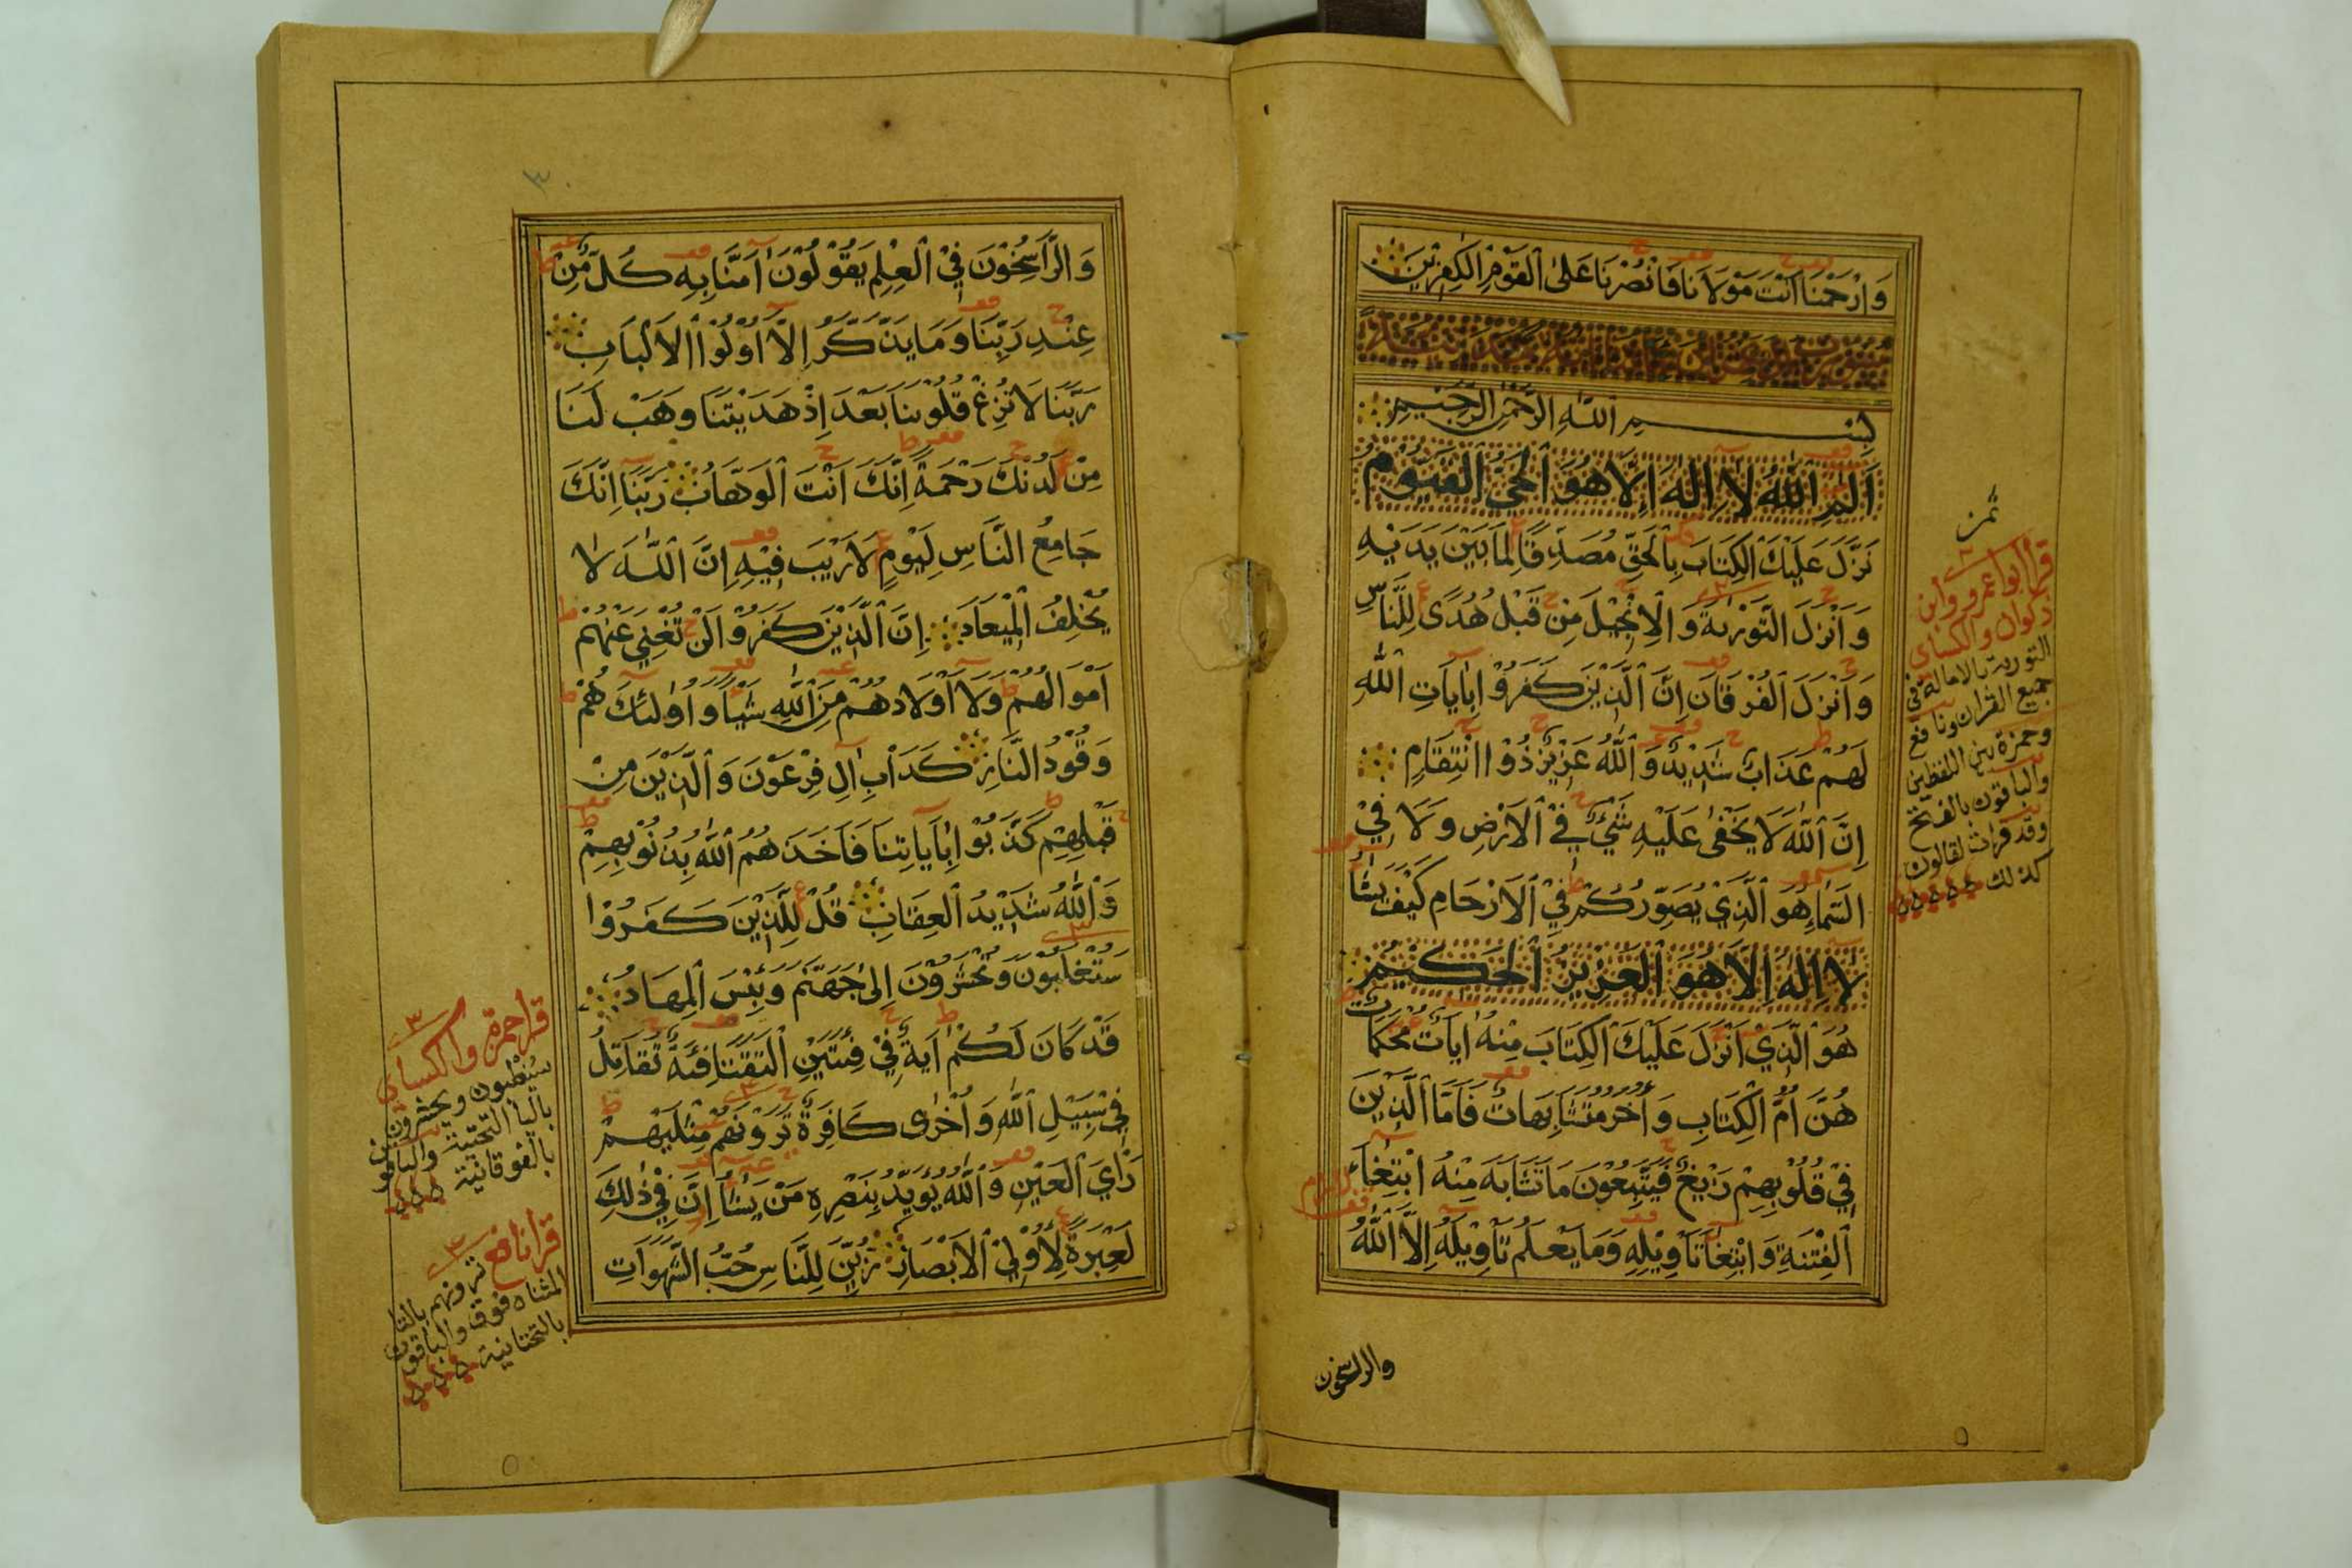 وَارْحَمْنَا اَنْتَ مَوْلَانَا فَانْصُرْنَا عَلَى الْقَوْمِ الْكٰفِرِيْنَ
بِسْمِ اللّٰهِ الرَّحْمٰنِ الرَّحِيْمِ
الٓمٓ اَللّٰهُ لَا اِلٰهَ اِلَّا هُوَ الْحَيُّ الْقَيُّوْمُ
نَزَّلَ عَلَيْكَ الْكِتَابَ بِالْحَقِّ مُصَدِّقًا لِمَا بَيْنَ يَدَيْهِ
وَاَنْزَلَ التَّوْرٰىةَ وَالْاِنْجِيْلَ مِنْ قَبْلُ هُدًى لِلنَّاسِ
وَاَنْزَلَ الْفُرْقَانَ اِنَّ الَّذِيْنَ كَفَرُوْا بِاٰيَاتِ اللّٰهِ
لَهُمْ عَذَابٌ شَدِيْدٌ وَاللّٰهُ عَزِيْزٌ ذُوْا انْتِقَامٍ
اِنَّ اللّٰهَ لَا يَخْفٰى عَلَيْهِ شَيْءٌ فِيْ الْاَرْضِ وَلَا فِيْ
السَّمَاءِ هُوَ الَّذِيْ يُصَوِّرُكُمْ فِيْ الْاَرْحَامِ كَيْفَ يَشَاُ
لَا اِلٰهَ اِلَّا هُوَ الْعَزِيْزُ الْحَكِيْمُ
هُوَ الَّذِيْ اَنْزَلَ عَلَيْكَ الْكِتَابَ مِنْهُ اٰيَاتٌ مُحْكَمَاتٌ
هُنَّ اُمُّ الْكِتَابِ وَاُخَرُ مُتَشَابِهَاتٌ فَاَمَّا الَّذِيْنَ
فِيْ قُلُوْبِهِمْ زَيْغٌ فَيَتَّبِعُوْنَ مَا تَشَابَهَ مِنْهُ ابْتِغَاءَ
الْفِتْنَةِ وَابْتِغَا تَاْوِيْلِهِ وَمَا يَعْلَمُ تَاْوِيْلَهُ اِلَّا اللّٰهُ
والراسخون
ثمن
قرا ابوا عمرو وابن
ذكوان والكساي
التورية بالامالة في
جميع القران ونافع
وحمزة بين اللفظين
والباقون بالفتح
وقد قرات لقالون
كذلك
٣
وَالرَّاسِخُوْنَ فِيْ الْعِلْمِ يَقُوْلُوْنَ اٰمَنَّا بِهِ كُلٌّ مِّنْ
عِنْدِ رَبِّنَا وَمَا يَذَّكَّرُ اِلَّا اُوْلُوْا الْاَلْبَابِ
رَبَّنَا لَا تُزِغْ قُلُوْبَنَا بَعْدَ اِذْ هَدَيْتَنَا وَهَبْ لَنَا
مِنْ لَدُنْكَ رَحْمَةً اِنَّكَ اَنْتَ الْوَهَّابُ رَبَّنَا اِنَّكَ
جَامِعُ النَّاسِ لِيَوْمٍ لَا رَيْبَ فِيْهِ اِنَّ اللّٰهَ لَا
يُخْلِفُ الْمِيْعَادَ اِنَّ الَّذِيْنَ كَفَرُوْا لَنْ تُغْنِيَ عَنْهُمْ
اَمْوَالُهُمْ وَلَا اَوْلَادُهُمْ مِنَ اللّٰهِ شَيْأً وَاُولٰئِكَ هُمْ
وَقُوْدُ النَّارِ كَدَاْبِ اٰلِ فِرْعَوْنَ وَالَّذِيْنَ مِنْ
قَبْلِهِمْ كَذَّبُوْا بِاٰيَاتِنَا فَاَخَذَهُمُ اللّٰهُ بِذُنُوْبِهِمْ
وَاللّٰهُ شَدِيْدُ الْعِقَابِ قُلْ لِلَّذِيْنَ كَفَرُوْا
سَتُغْلَبُوْنَ وَتُحْشَرُوْنَ اِلٰى جَهَنَّمَ وَبِئْسَ الْمِهَادُ
قَدْ كَانَ لَكُمْ اٰيَةٌ فِيْ فِئَتَيْنِ الْتَقَتَا فِئَةٌ تُقَاتِلُ
فِيْ سَبِيْلِ اللّٰهِ وَاُخْرٰى كَافِرَةٌ تَرَوْنَهُمْ مِثْلَيْهِمْ
رَاْيَ الْعَيْنِ وَاللّٰهُ يُؤَيِّدُ بِنَصْرِهِ مَنْ يَشَاُ اِنَّ فِيْ ذٰلِكَ
لَعِبْرَةً لِاُوْلِيْ الْاَبْصَارِ زُيِّنَ لِلنَّاسِ حُبُّ الشَّهَوَاتِ
قرا حمزة والكساي
سيغلبون ويحشرون
باليا التحتية والباقون
بالفوقانية
قرا نافع ترونهم بالتا
المثناه فوق والباقون
بالتحتانية